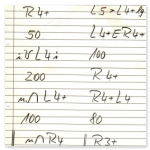 R4+ L5>L4+
50 L4+ER4+
L4+ 100
200 R4+
m∩L4+ R4+L4
100 80
m∩R4 R3+